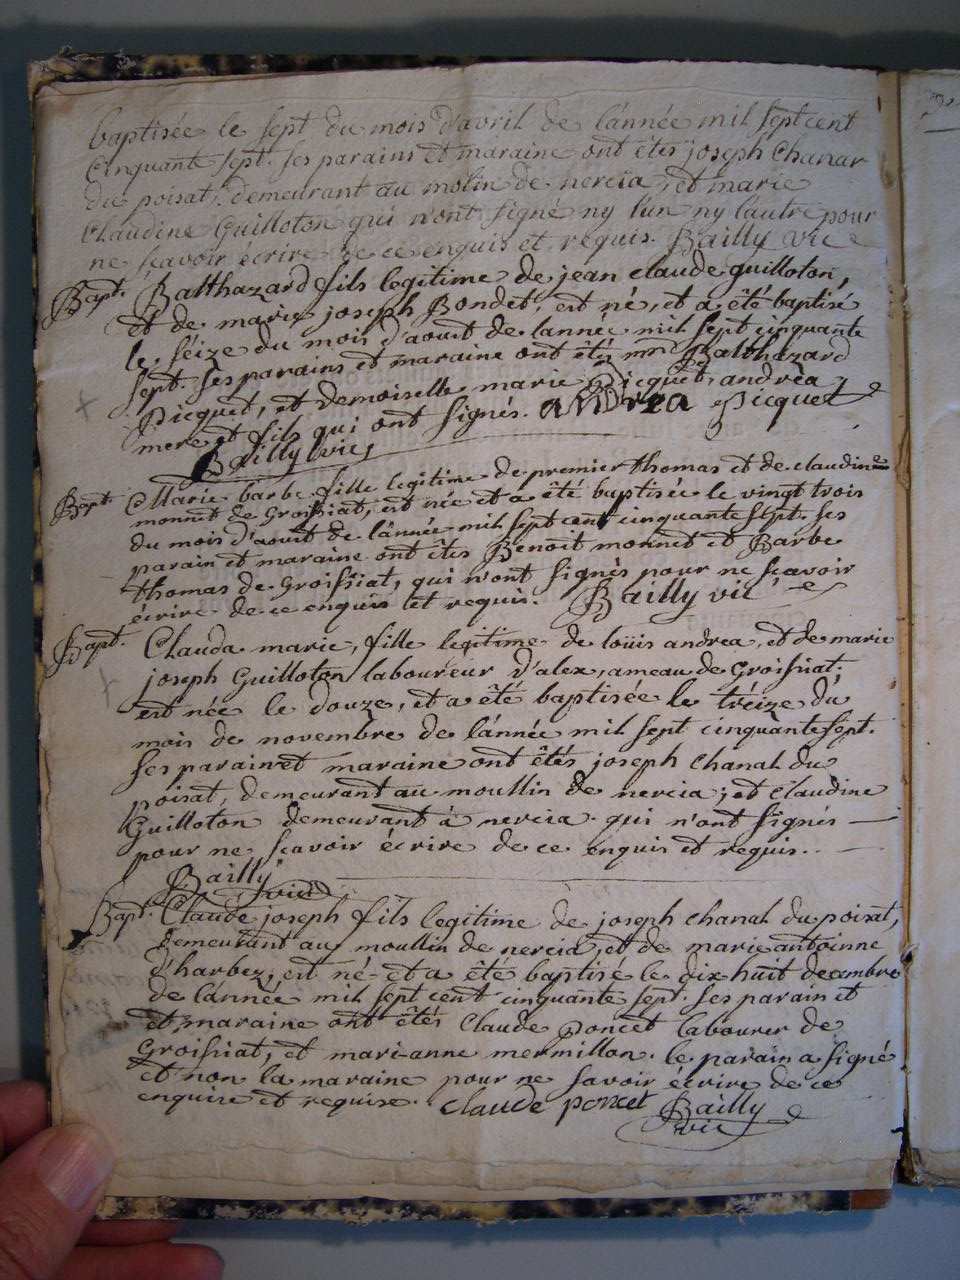 baptisée le sept du mois d'avril de lánnée mil sept cent
cinquante sept. ses parains et maraine ont étés joseph Chanar
du poisat, demeurant au molin de nercia, et marie
Claudine Guilloton qui n'ont signé ny l'un ny l'autre pour
ne scavoir écrire de ce enquis et requis. Bailly vic
Bapt. Balthazard fils legitime de jean claude guilloton,
et de marie joseph Bondet, est né, et a été baptisé
le séize du mois d'aoust de lannée mil sept cinquante
sept. ses parains et maraine ont étés mr Balthazard
Picquet, et demoiselle marie Picquet, andréa
mere et fils qui ont signés. andrea Picquet
Bailly vic,
Bapt. Marie barbe fille legitime de premier thomas et de claudine
monnet de Groissiat, est née et a été baptisée le vingt trois
du mois d'aoust de lánnée mil sept cent cinquante sept. ses
parain et maraine ont êtes Benoit monnet et Barbe
thomas de Groissiat, qui n'ont signés pour ne scavoir
écrire de ce enquis et requis. Bailly vic
Bapt. Clauda marie, fille legitime de loüis andrea, et de marie
joseph Guilloton laboureur d'alex, ameau de Groissiat.
est née le douze, et a été baptisée le tréize du
mois de novembre de lánnée mil sept cinquante sept.
ses parain et maraine ont êtés joseph Chanal du
poisat, demeurant au moullin de nercia, et Claudine
Guilloton demeurant à nercia. qui n'ont signés
pour ne scavoir écrire de ce enquis et requis.
Bailly
vic
Bapt. Claude joseph fils legitime de joseph chanal du poisat,
demeurant au moullin de nercia, et de marie antoinne
d'harbez, est né et a été baptisé le dix huit decembre
de lánnée mil sept cent cinquante sept. ses parain et
et maraine ont êtés Claude Poncet labourer de
Groissiat, et mari-anne mermillon. le parain a signé
et non la maraine pour ne savoir écrire de ce
enquise et requise. Claude poncet Bailly
vic